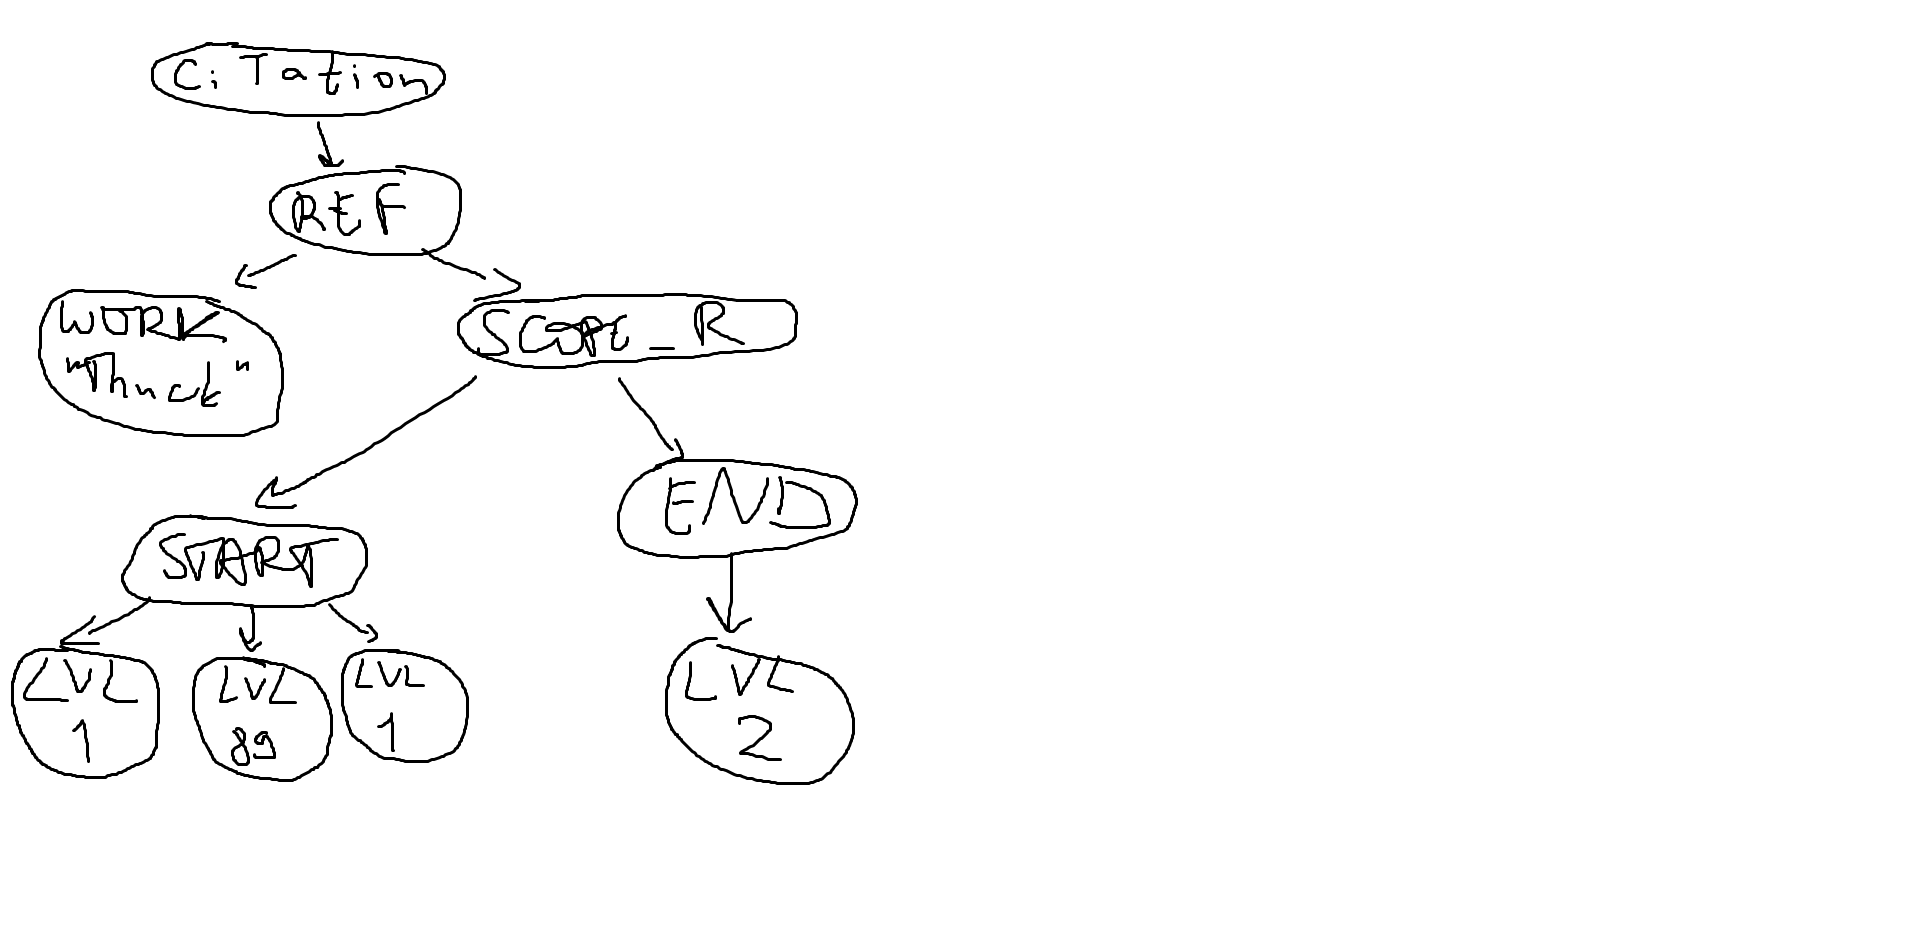 CiTation
REF
WORK
"Thuct"
SCOPE_R
END
START
LVL
1
LVL
89
LVL
1
LVL
2